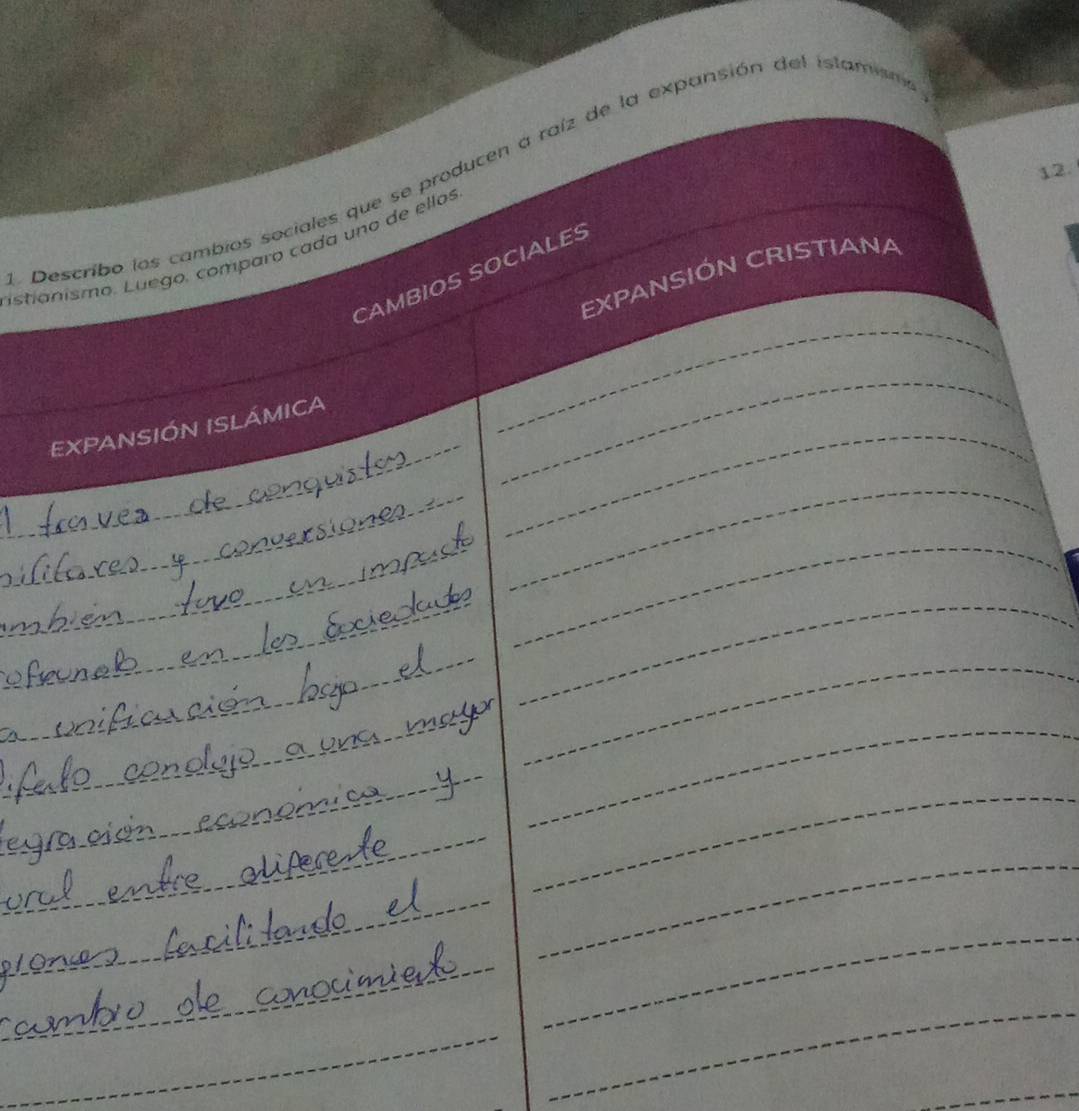 1. Describo los cambios sociales que se producen a raíz de la expansión del islamismo y
ristianismo. Luego, comparo cada uno de ellos.
12.
CAMBIOS SOCIALES
EXPANSIÓN ISLÁMICA
EXPANSIÓN CRISTIANA
l traves de conquistas
ilitares y conversiones
mbien tuvo un impacto
rofundo en las Sociedades
a unificación bajo el
lifato condujo a una mayor
tegración económica y
ural entre diferente
giones facilitando el
cambio de conocimiento